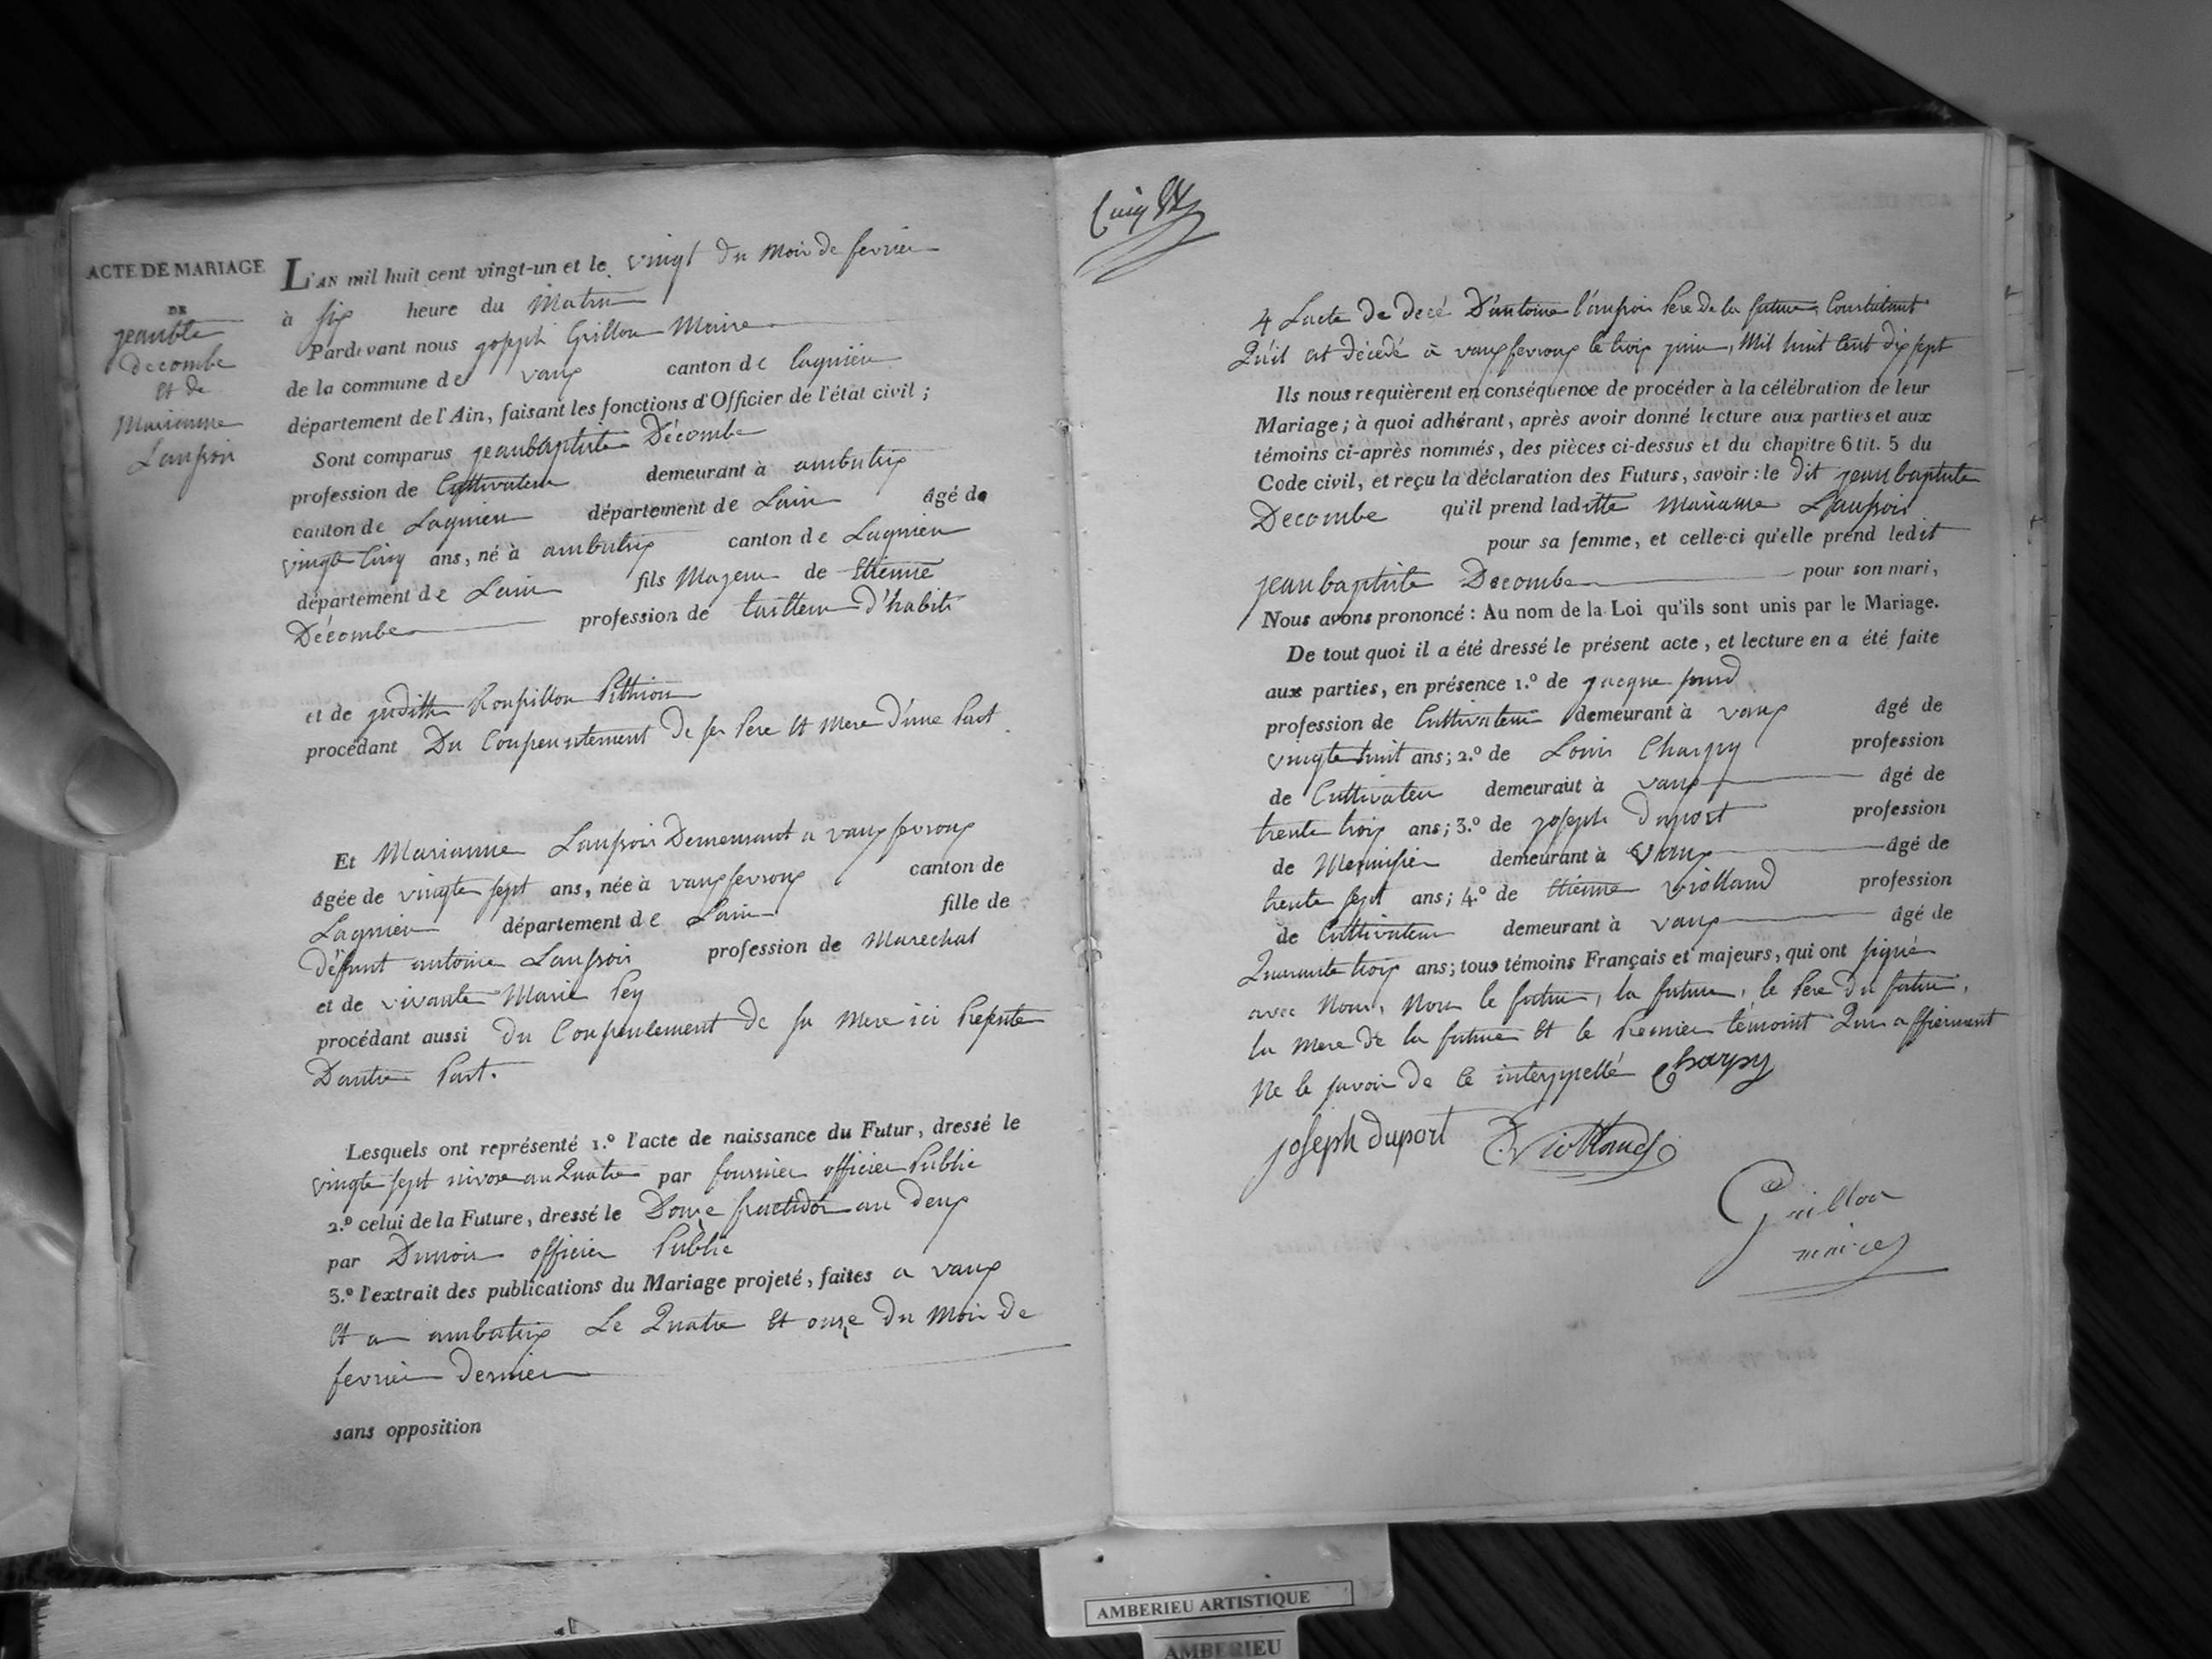 ACTE DE MARIAGE
DE
jeanbte
Decombe
et de
Marianne
Laufroi
L'AN mil huit cent vingt-un et le vingt du Mois de fevrier
à six heure du Matin
Pardevant nous joseph Grillon Maire
de la commune de vaux canton de lagnieu
département de l'Ain, faisant les fonctions d'Officier de l'état civil ;
Sont comparus jeanbaptiste Décombe
profession de Cultivateur demeurant à ambutrix
canton de Lagnieu département de Lain âgé de
vingte cinq ans, né à ambutrix canton de Lagnieu
département de Lain fils Majeur de Etienne
Décombe profession de tailleur d'habits
et de juditte Roupillon Pithion
procédant Du Consentement de ses Pere Et Mere D'une Part
Et Marianne Laufroi Demeurant a vaux fevroux
âgée de vingte sept ans, née à vaux fevroux canton de
Lagnieu département de Lain fille de
Défunt antoine Laufroi profession de Marechal
et de vivante Marie Pey
procédant aussi du Consentement de sa Mere ici Presente
Dautre Part.
Lesquels ont représenté 1.º l'acte de naissance du Futur, dressé le
vingte sept nivose an Quatre par fournier officier Public
2.º celui de la Future, dressé le Douze fructidor an deux
par Dunoir officier Public
3.º l'extrait des publications du Mariage projeté, faites a vaux
Et a ambutrix Le Quatre Et onze Du Mois De
fevrier Dernier
sans opposition
4 Lacte De decé D'antoine l'aufroi Pere De la future, Constatant
Qu'il est décedé à vaux fevroux le trois juin, Mil huit Cent dix sept
Ils nous requièrent en conséquence de procéder à la célébration de leur
Mariage ; à quoi adhérant, après avoir donné lecture aux parties et aux
témoins ci-après nommés, des pièces ci-dessus et du chapitre 6 tit. 5 du
Code civil, et reçu la déclaration des Futurs, savoir : le dit jeanbaptiste
Decombe qu'il prend laditte Marianne Laufroi
pour sa femme, et celle-ci qu'elle prend ledit
jeanbaptiste Decombe pour son mari,
Nous avons prononcé : Au nom de la Loi qu'ils sont unis par le Mariage.
De tout quoi il a été dressé le présent acte, et lecture en a été faite
aux parties, en présence 1.º de jacque
profession de Cultivateur demeurant à vaux âgé de
vingte huit ans ; 2.º de Louis Charpy profession
de Cultivateur demeurant à vaux âgé de
trente trois ans ; 3.º de joseph Duport profession
de Menuisier demeurant à vaux âgé de
trente sept ans ; 4.º de Etienne violland profession
de Cultivateur demeurant à vaux âgé de
Quarante trois ans ; tous témoins Français et majeurs, qui ont signé
avec Nous, Non le futur, la future, le Pere Du futur,
la Mere de la future Et le Premier temoint Qui affirment
Ne le savoir de Ce interppellé Charpy
joseph duport E. Violland
Grillon
maire
AMBERIEU ARTISTIQUE
AMBERIEU